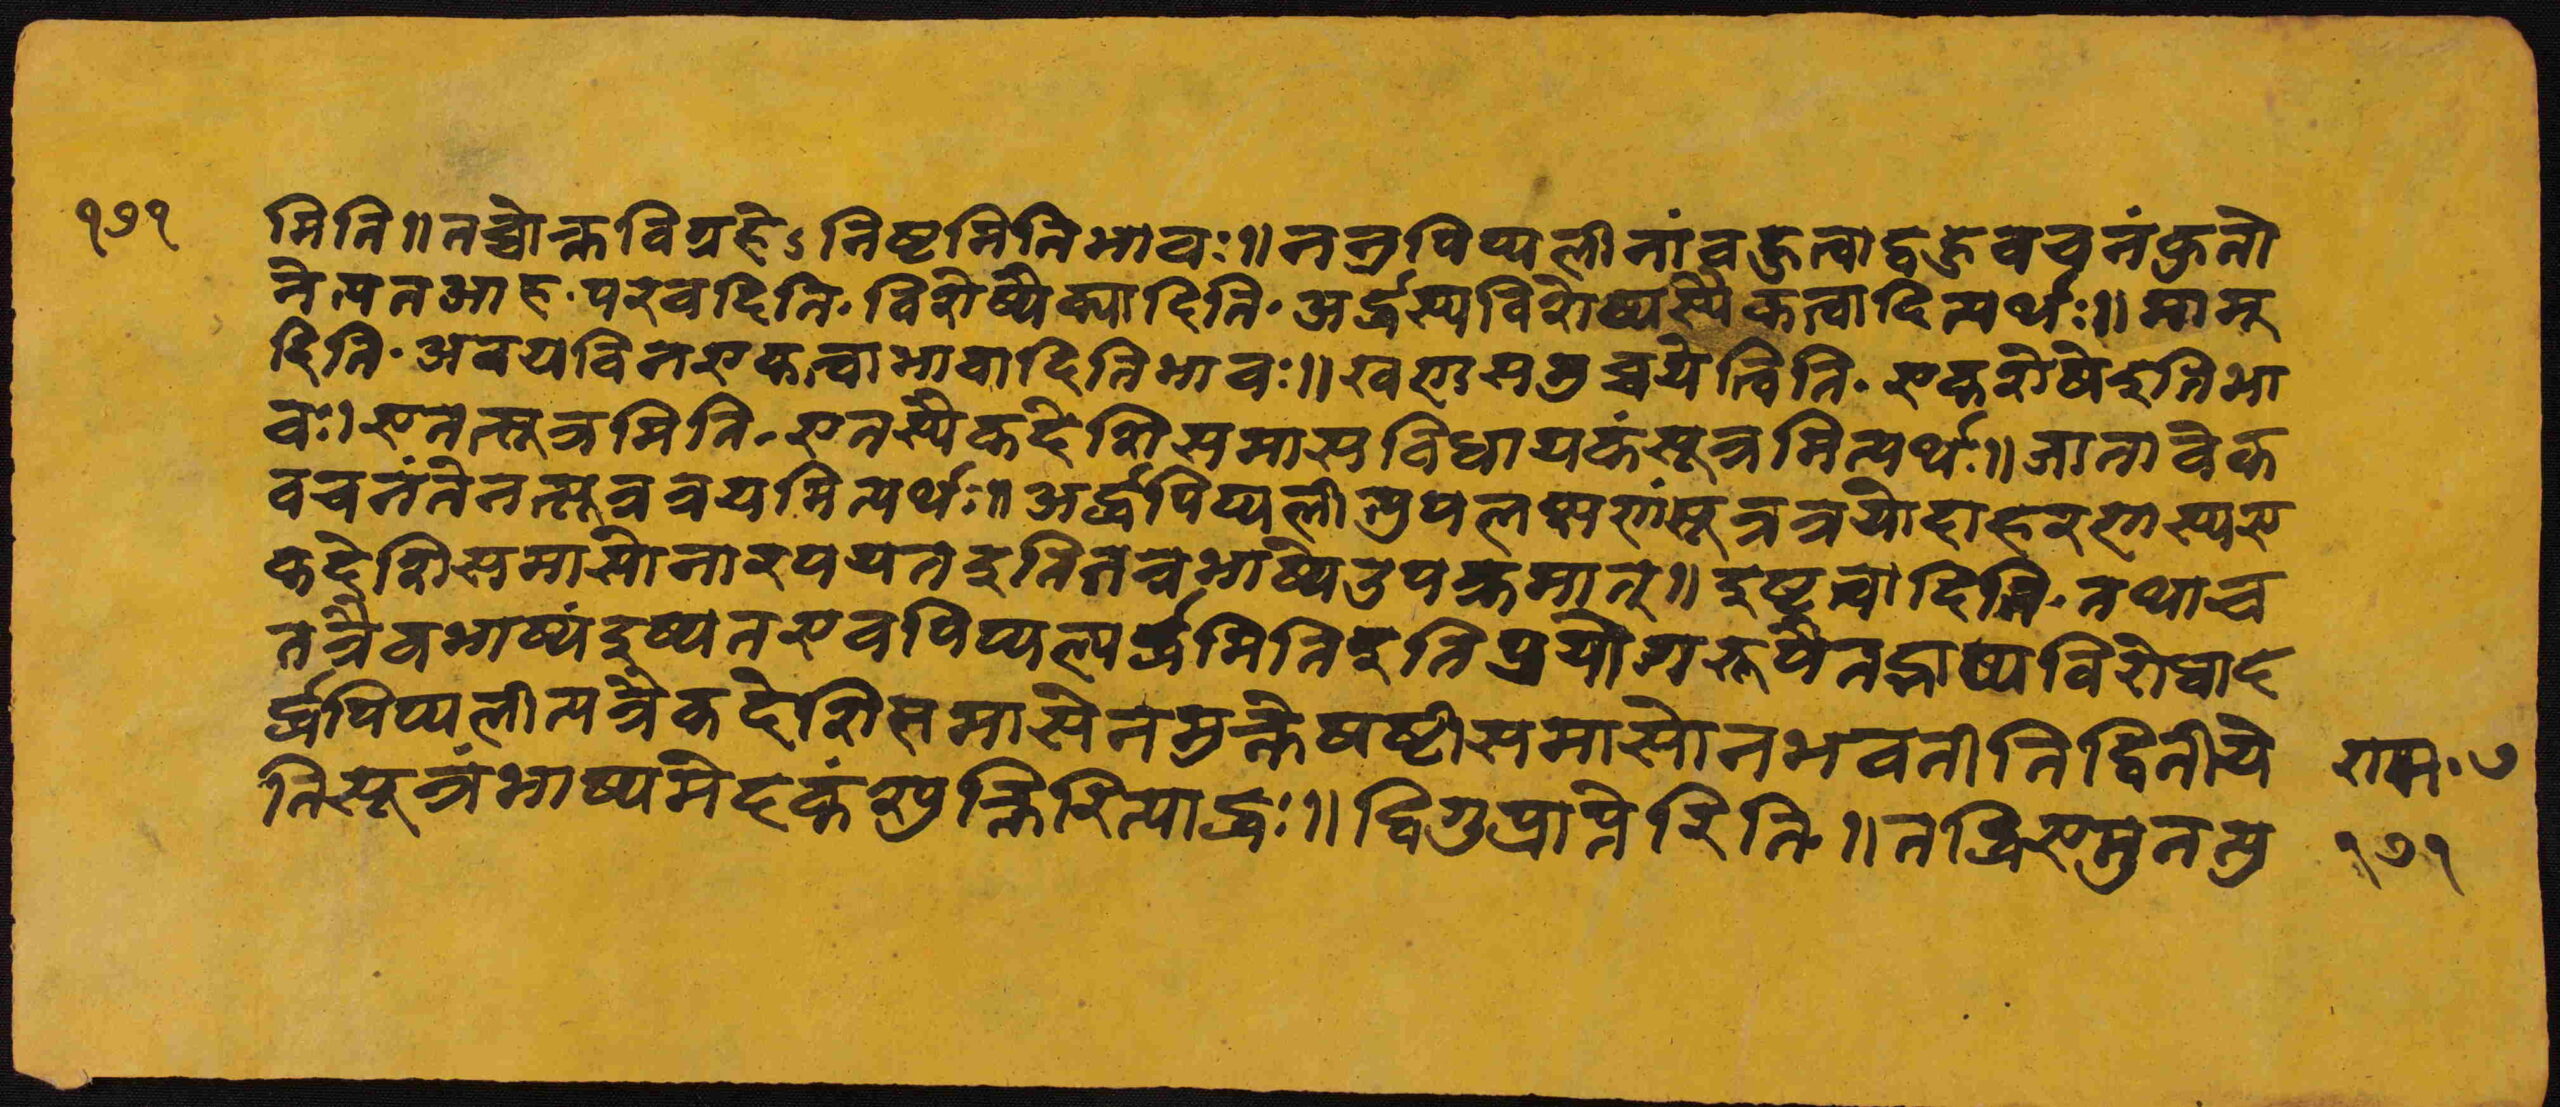 १७१ मिति॥तच्चोक्तविग्रहेऽनिष्टमितिभावः॥ननुपिप्पलीनांबहुत्वाद्बहुवचनंकुतो
नेत्यतआह·परवदिति·विशेष्यैक्यादिति·अर्द्धस्यविशेष्यस्यैकत्वादित्यर्थः॥माभू
दिति·अवयविनएकत्वाभावादितिभावः॥खण्डसमुच्चयेत्विति·एकशेषेइतिभा
वः।एतत्सूत्रमिति·एतस्यैकदेशिसमासविधायकंसूत्रमित्यर्थः॥जातावेक
वचनंतेनत्सूत्रत्रयमित्यर्थः॥अर्द्धपिप्पलीत्युपलक्षणंसूत्रत्रयोदाहरणस्यए
कदेशिसमासोनारभ्यतइतितत्रभाष्येउपक्रमात्॥इष्टत्वादिति·तथाच
तत्रैवभाष्यंइष्यतएवपिप्पल्यर्द्धमितिइतिप्रयोगरूपैतद्भाष्यविरोधाद
र्द्धपिप्पलीत्यत्रैकदेशिसमासेनमुक्तेषष्ठीसमासोनभवतीतिद्वितीये राम·७
तिसूत्रंभाष्यमेदक्तंप्रुक्तिरित्याहुः॥द्विगुप्राप्तेरिति॥तद्धिएस्तुतत्पु १७१